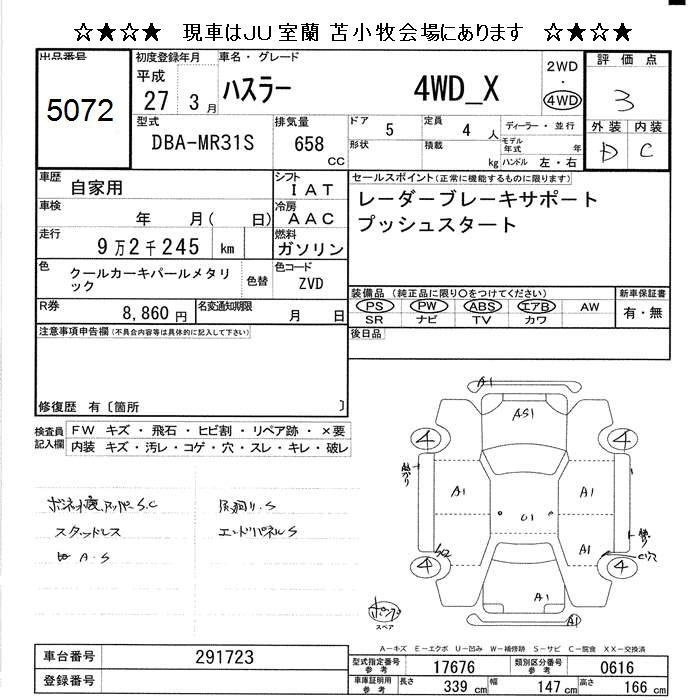 ☆★☆★ 現車はJU室蘭 苫小牧会場にあります ☆★☆★
出品番号
5072
初度登録年月
平成
27 3 月
車名・グレード
ハスラー 4WD_X
2WD
・
4WD
評価点
3
外装 内装
D C
型式
DBA-MR31S
排気量
658
CC
ドア 5
定員 4 人
ディーラー・並行
形状
積載 kg
モデル年式 年
ハンドル 左・右
車歴
自家用
シフト
I A T
車検
年 月( 日)
冷房
A A C
走行
9万2千245 km
燃料
ガソリン
色
クールカーキパールメタリック
色替
色コード
ZVD
R券
8,860円
名変通知期限
月 日
セールスポイント(正常に機能するものに限ります)
レーダーブレーキサポート
プッシュスタート
装備品 (純正品に限り○をつけてください)
PS PW ABS エアB AW
SR ナビ TV カワ
新車保証書
有・無
後日品
注意事項申告欄(不具合内容等は具体的に記入して下さい)
修復歴 有〔箇所 〕
検査員記入欄
FW キズ・飛石・ヒビ割・リペア跡・×要
内装 キズ・汚レ・コゲ・穴・スレ・キレ・破レ
スタッドレス
エンドパネルS
A・S
A1
AS1
4
4
A1
A1
U1
A1
4
4
A1
A1
スペア
A-キズ E-エクボ U-凹み W-補修跡 S-サビ C-腐食 XX-交換済
車台番号
291723
登録番号
型式指定番号
参考
17676
類別区分番号
参考
0616
車庫証明用
参考
長さ 339 cm
幅 147 cm
高さ 166 cm